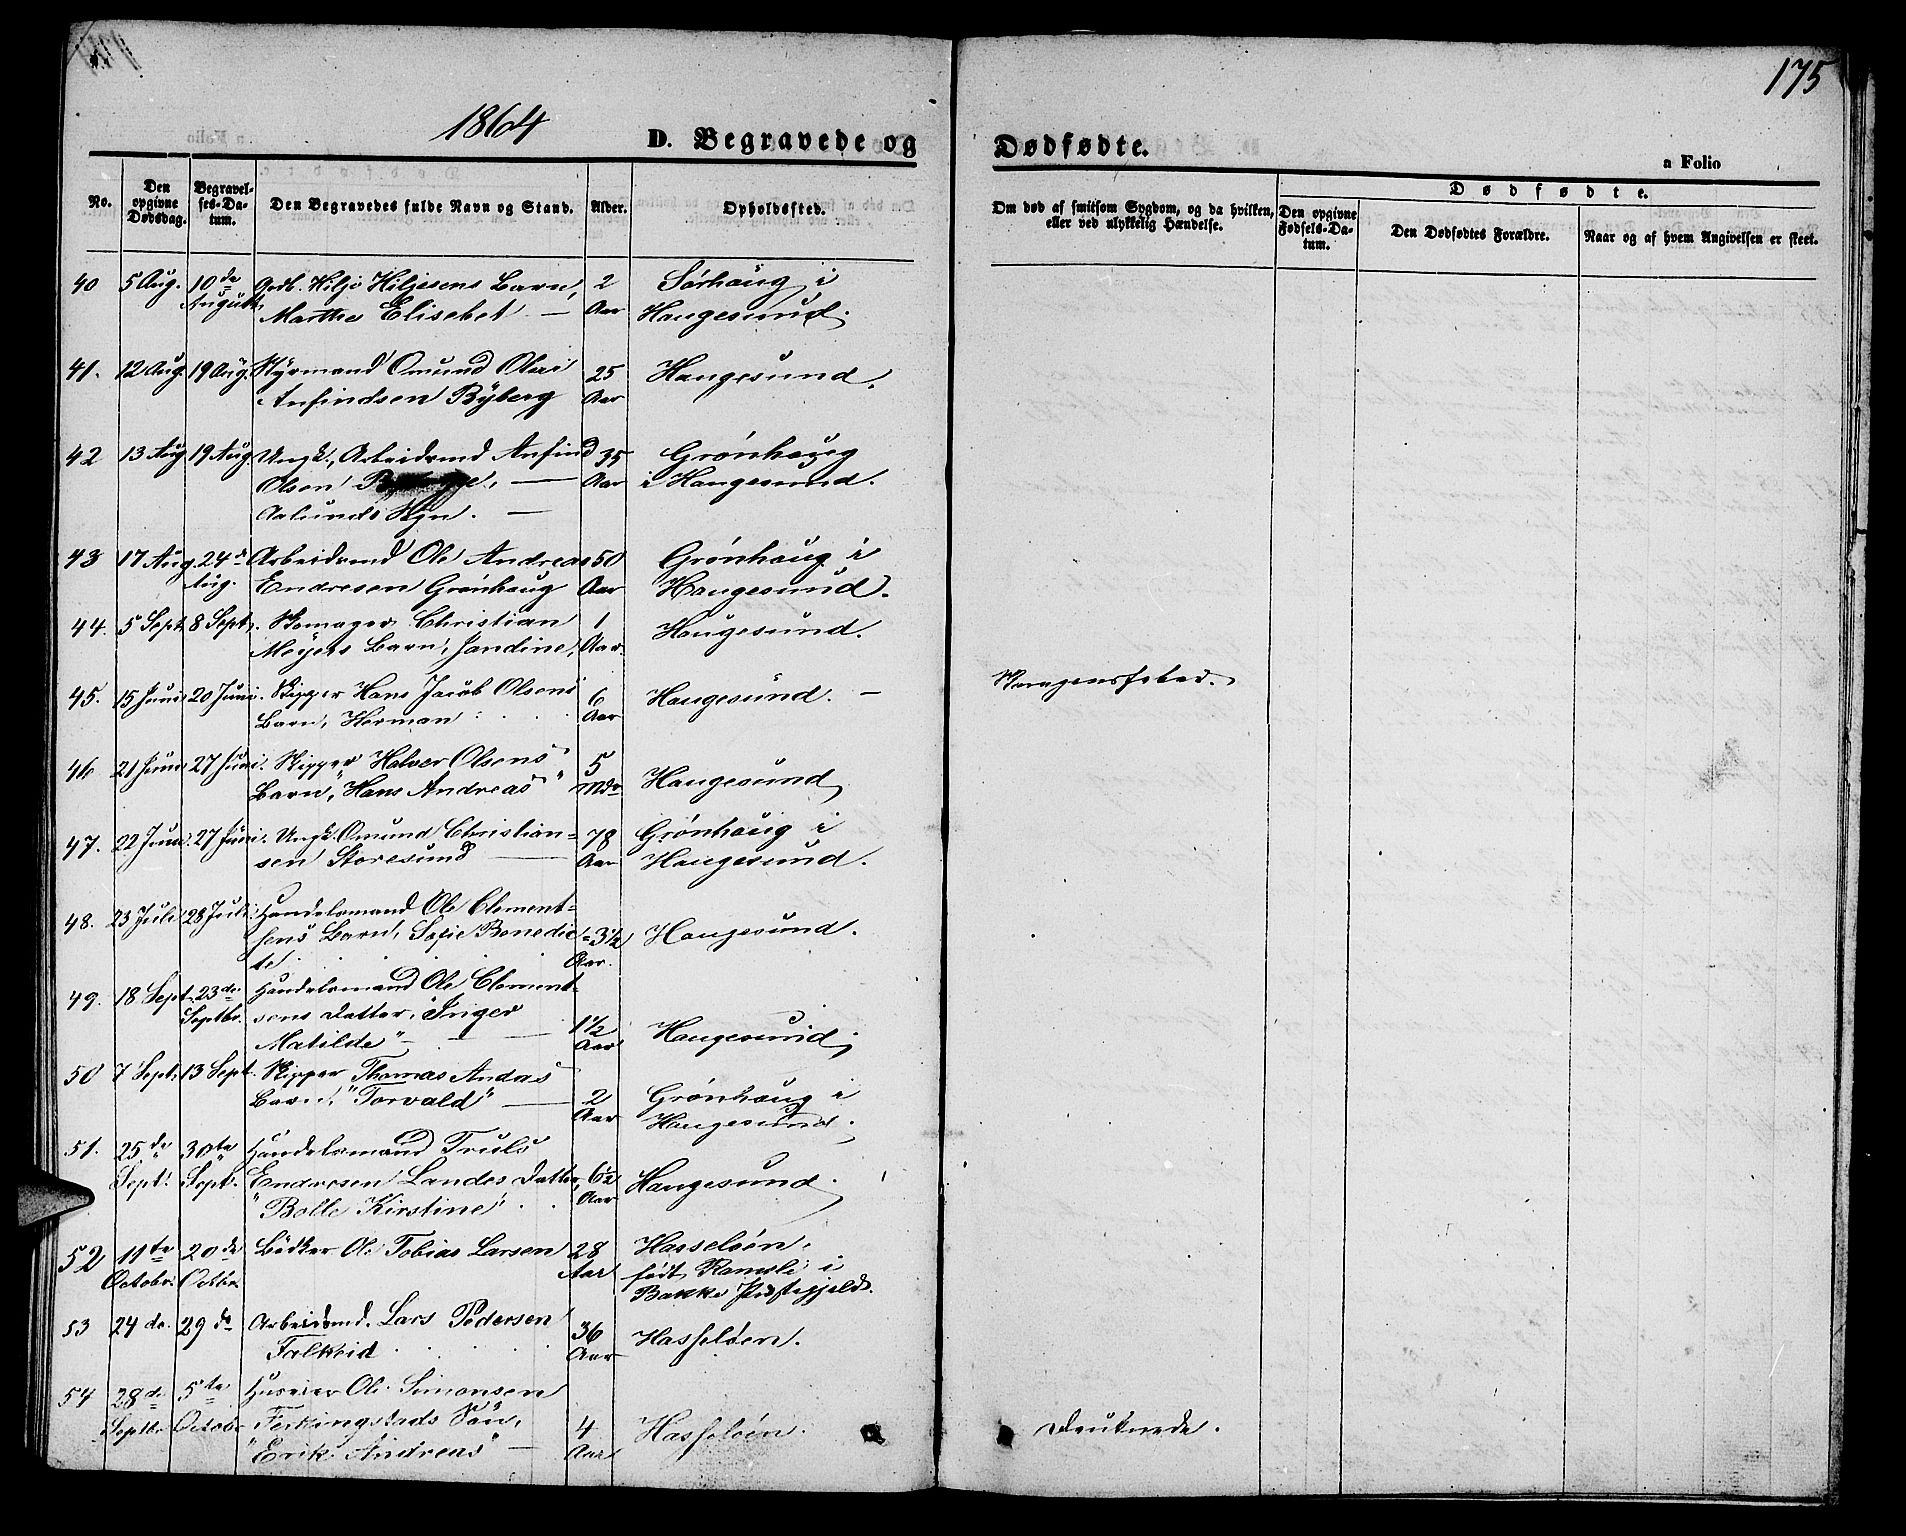 175
1864
D. Begravede og Dødfødte.
a Folio
No.
Den opgivne Dødsdag.
Begravelses-Datum.
Den Begravedes fulde Navn og Stand.
Alder.
Opholdssted.
Om død af smitsom Sygdom, og da hvilken, eller ved ulykkelig Hændelse.
Dødfødte.
Den opgivne Fødsels-Datum.
Den Dødfødtes Forældre.
Naar og af hvem Angivelsen er skeet.
40 5 Aug. 10de August Hiljesens Barn, 2 Sørhaug i
Marthe Elisebet — Aar Haugesund.
41. 12 Aug. 19 Aug. Styrmand Omund Olai 25 Haugesund.
Anfindsen Byberg Aar
42 13 Aug 19 Aug. Ungk. Arbeidsmd Anfind 35 Grønhaug
Olsen — Aar i Haugesund.
43 17 Aug. 24de Arbeidsmd Ole Andreas 50 Grønhaug i
Aug. Endresen Grønhaug Aar Haugesund.
44. 5 Sept. 8 Sept. Skomager Christian 1 Haugesund.
Meyers Barn, Jandine, Aar.
45. 15 Juni 20 Juni. Skipper Hans Jacob Olsens 6 Haugesund. — Skarlagensfeber.
Barn, Herman Aar
46 21 Juni 27 Juni. Skipper Halver Olsens 5 Haugesund
Barn, "Hans Andreas" Mdr.
47. 22 Juni. 27 Juni. Ungk. Omund Christian= 78 Grønhaug i
sen Storesund — Aar Haugesund.
48. 23 Juli 28 Juli. Handelsmand Ole Clement=
sens Barn, Sofie Benedic= 3 1/2 Haugesund.
te Aar.
49. 18 Sept. 23de Handelsmand Ole Clement=
Septbr. sens Datter, "Inger 1 1/2 Haugesund.
Matilde" — Aar
50 7 Sept. 13 Sept. Skipper Thomas Andas
Barn, "Torvald" — 2 Aar Grønhaug i Haugesund.
51. 25de 30te Handelsmand Truls
Sept. Sept. Endresen Landes Datter, 6 1/2 Haugesund.
"Bolle Kirstine" Aar
52 11te 20de Bødker Ole Tobias Larsen 28 Hasseløen,
Octobr. Octbr. Aar født Ramsli i
Bakke Præstegjeld.
53 24de. 29de Arbeidsmd. Lars Pedersen 36 Hasseløen.
Falkeid Aar
54 28de 5te Huseier Ole Simonsen
Septbr Octobr Ferkingstads Søn, 4 Hasseløen. Druknede.
"Erik Andreas" — Aar